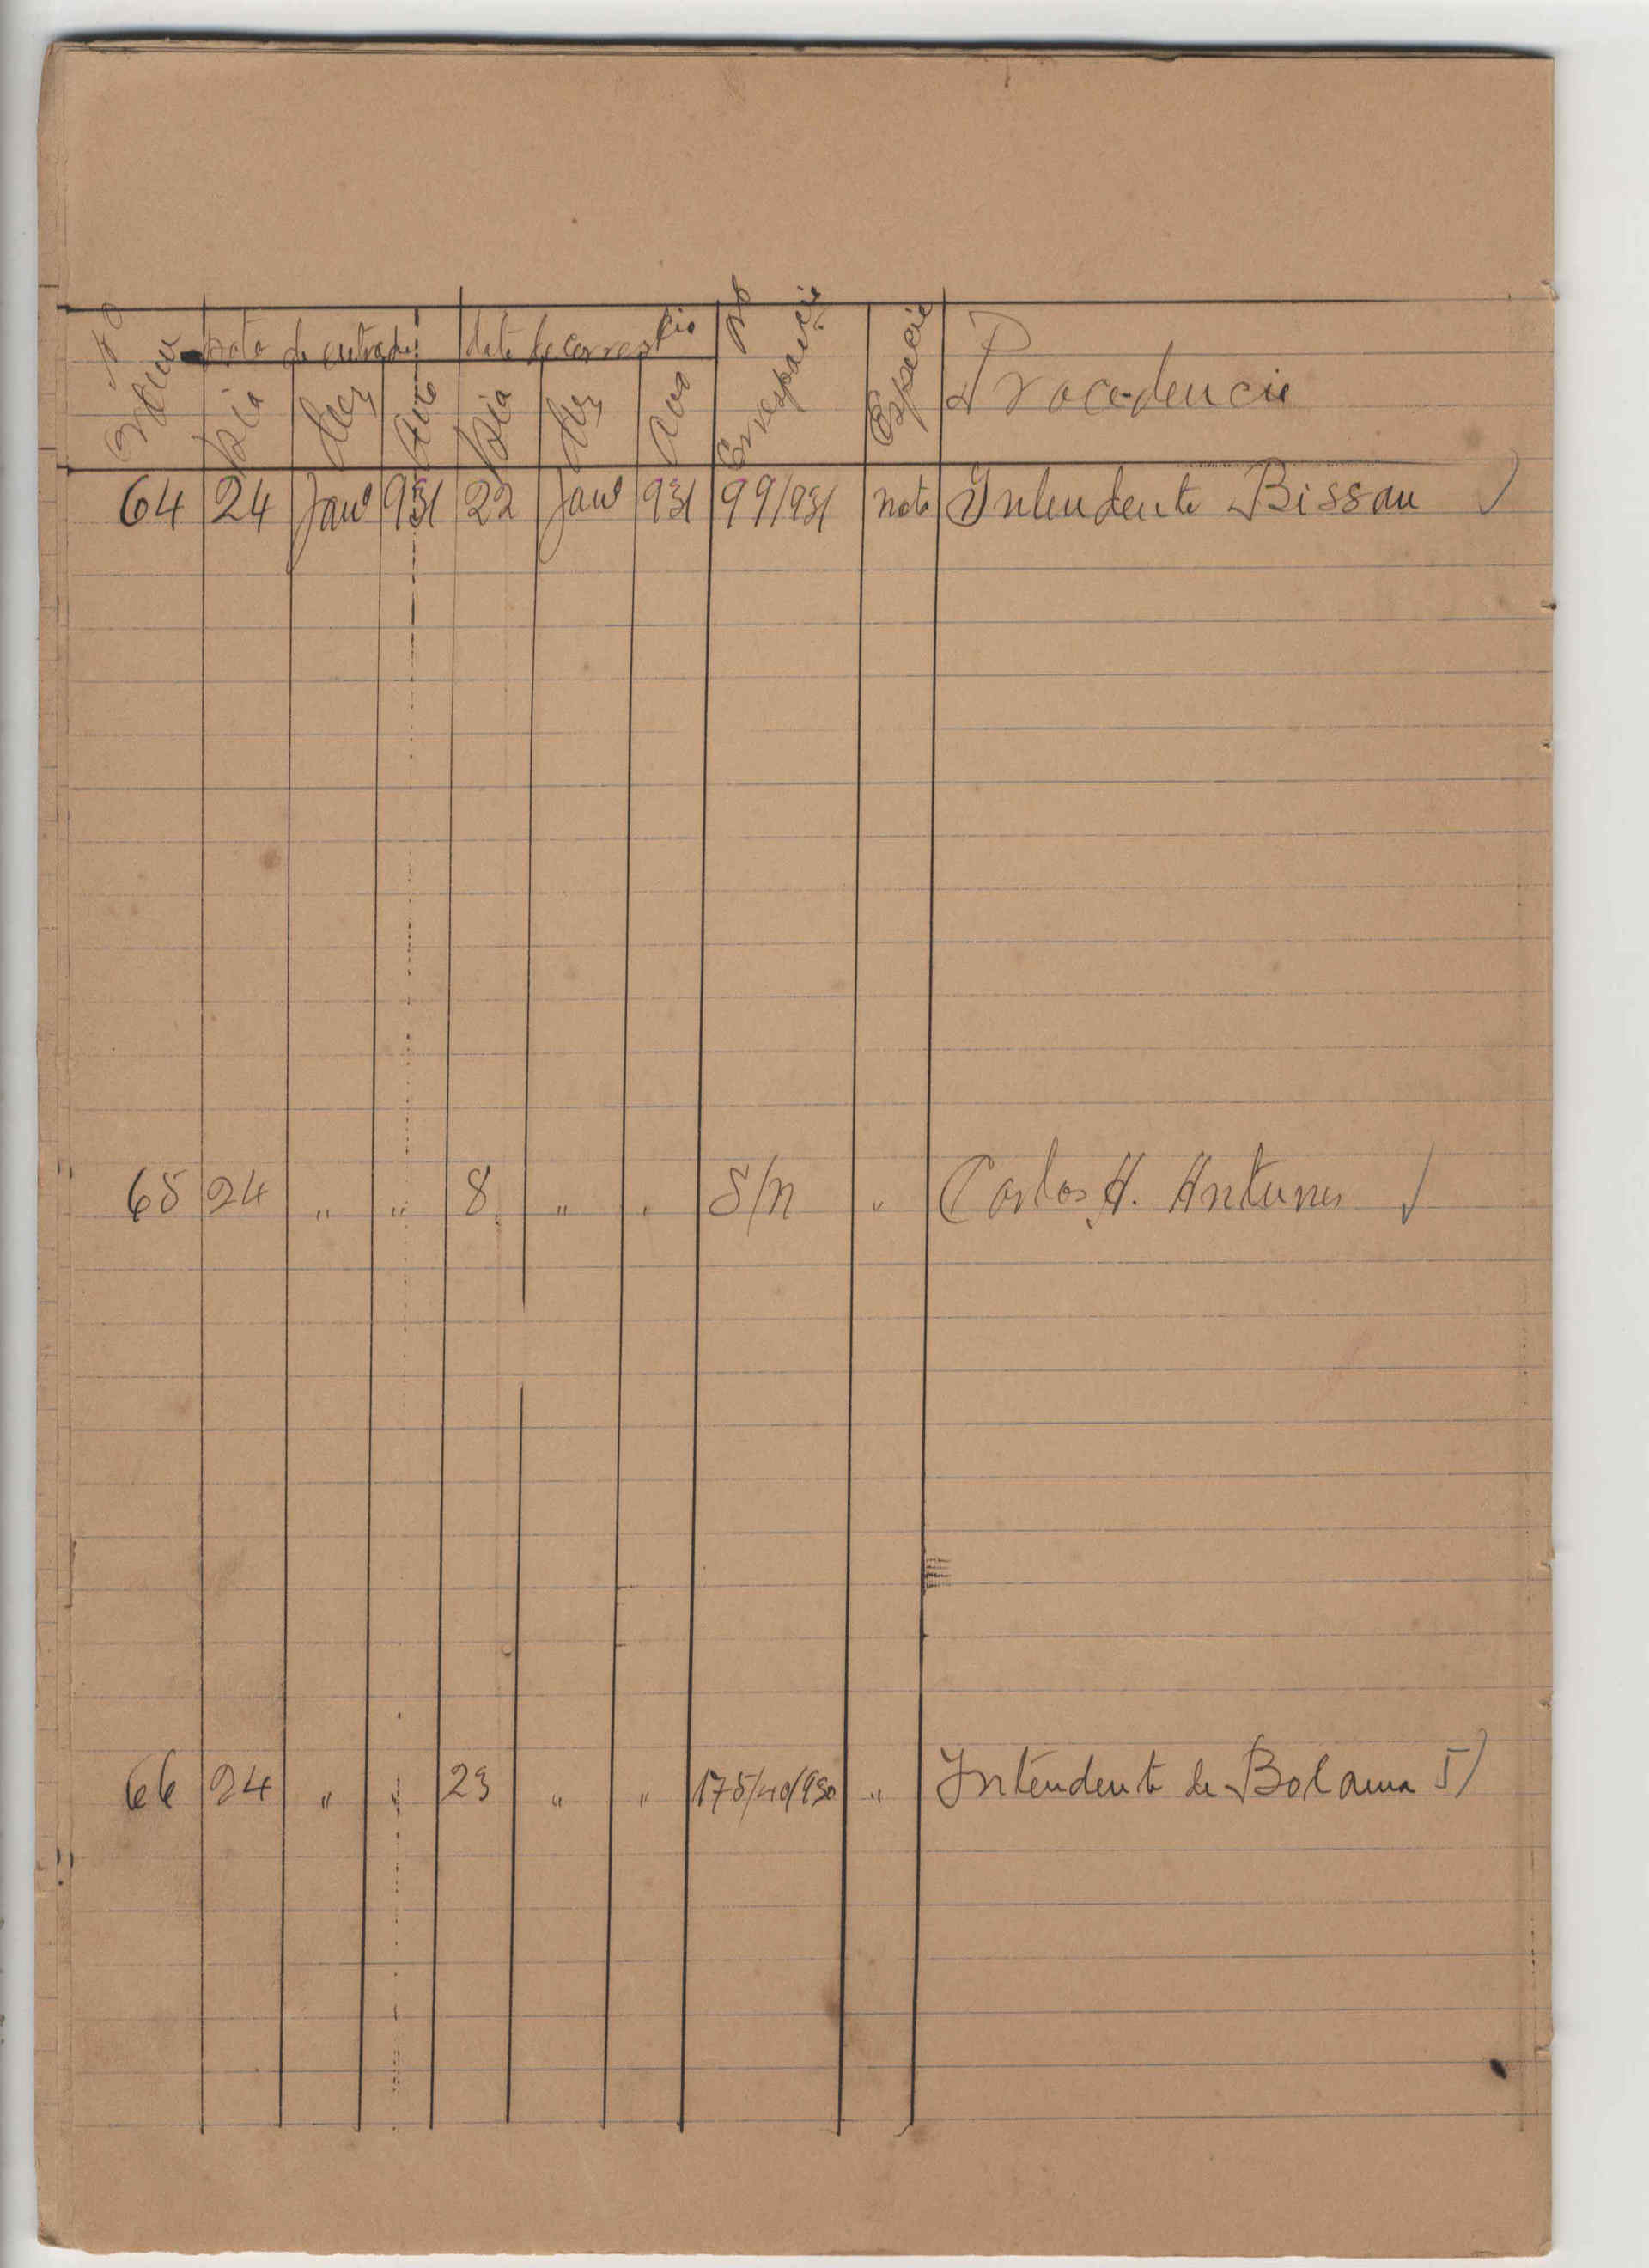 Nº Ordem data de entrada data de corresp.cia Nº Correspondência Especie Procedencia
Dia Mez Ano Dia Mez Ano
64 24 Janº 931 22 Janº 931 99/931 nota Intendente Bissau
65 24 " " 8 " " S/n " Carlos A. Antunes
66 24 " " 23 " " " Intendente de Bolama